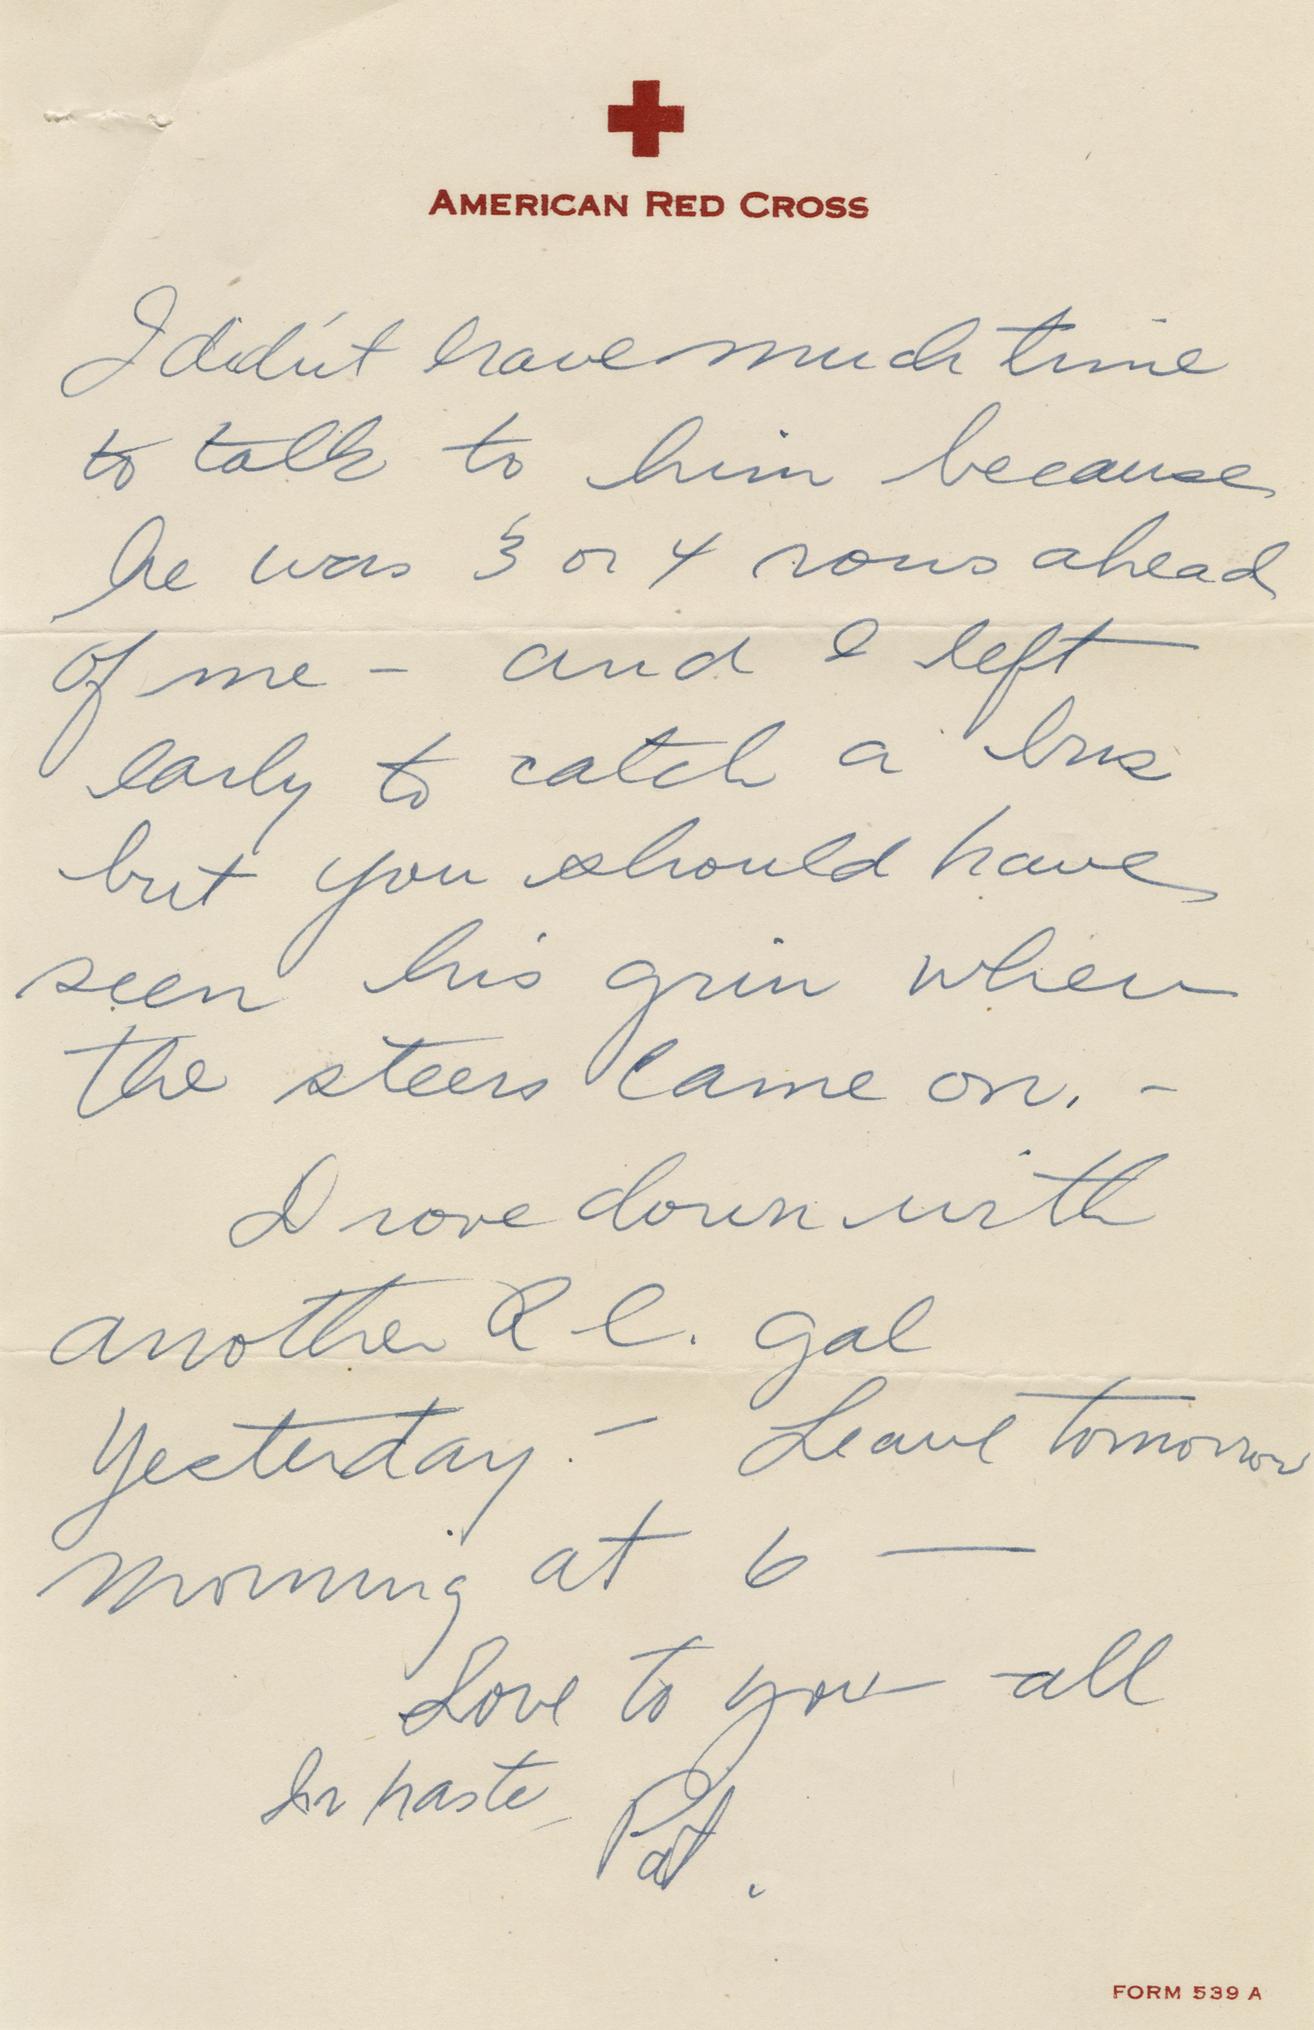 AMERICAN RED CROSS
I didn't have much time
to talk to him because
he was 3 or 4 rows ahead
of me - and I left
early to catch a bus
but you should have
seen his grin when
the steers came on. -
Drove down with
another R C. gal
yesterday. - Leave tomorrow
morning at 6 —
Love to you - all
In haste
Pat.
FORM 539 A